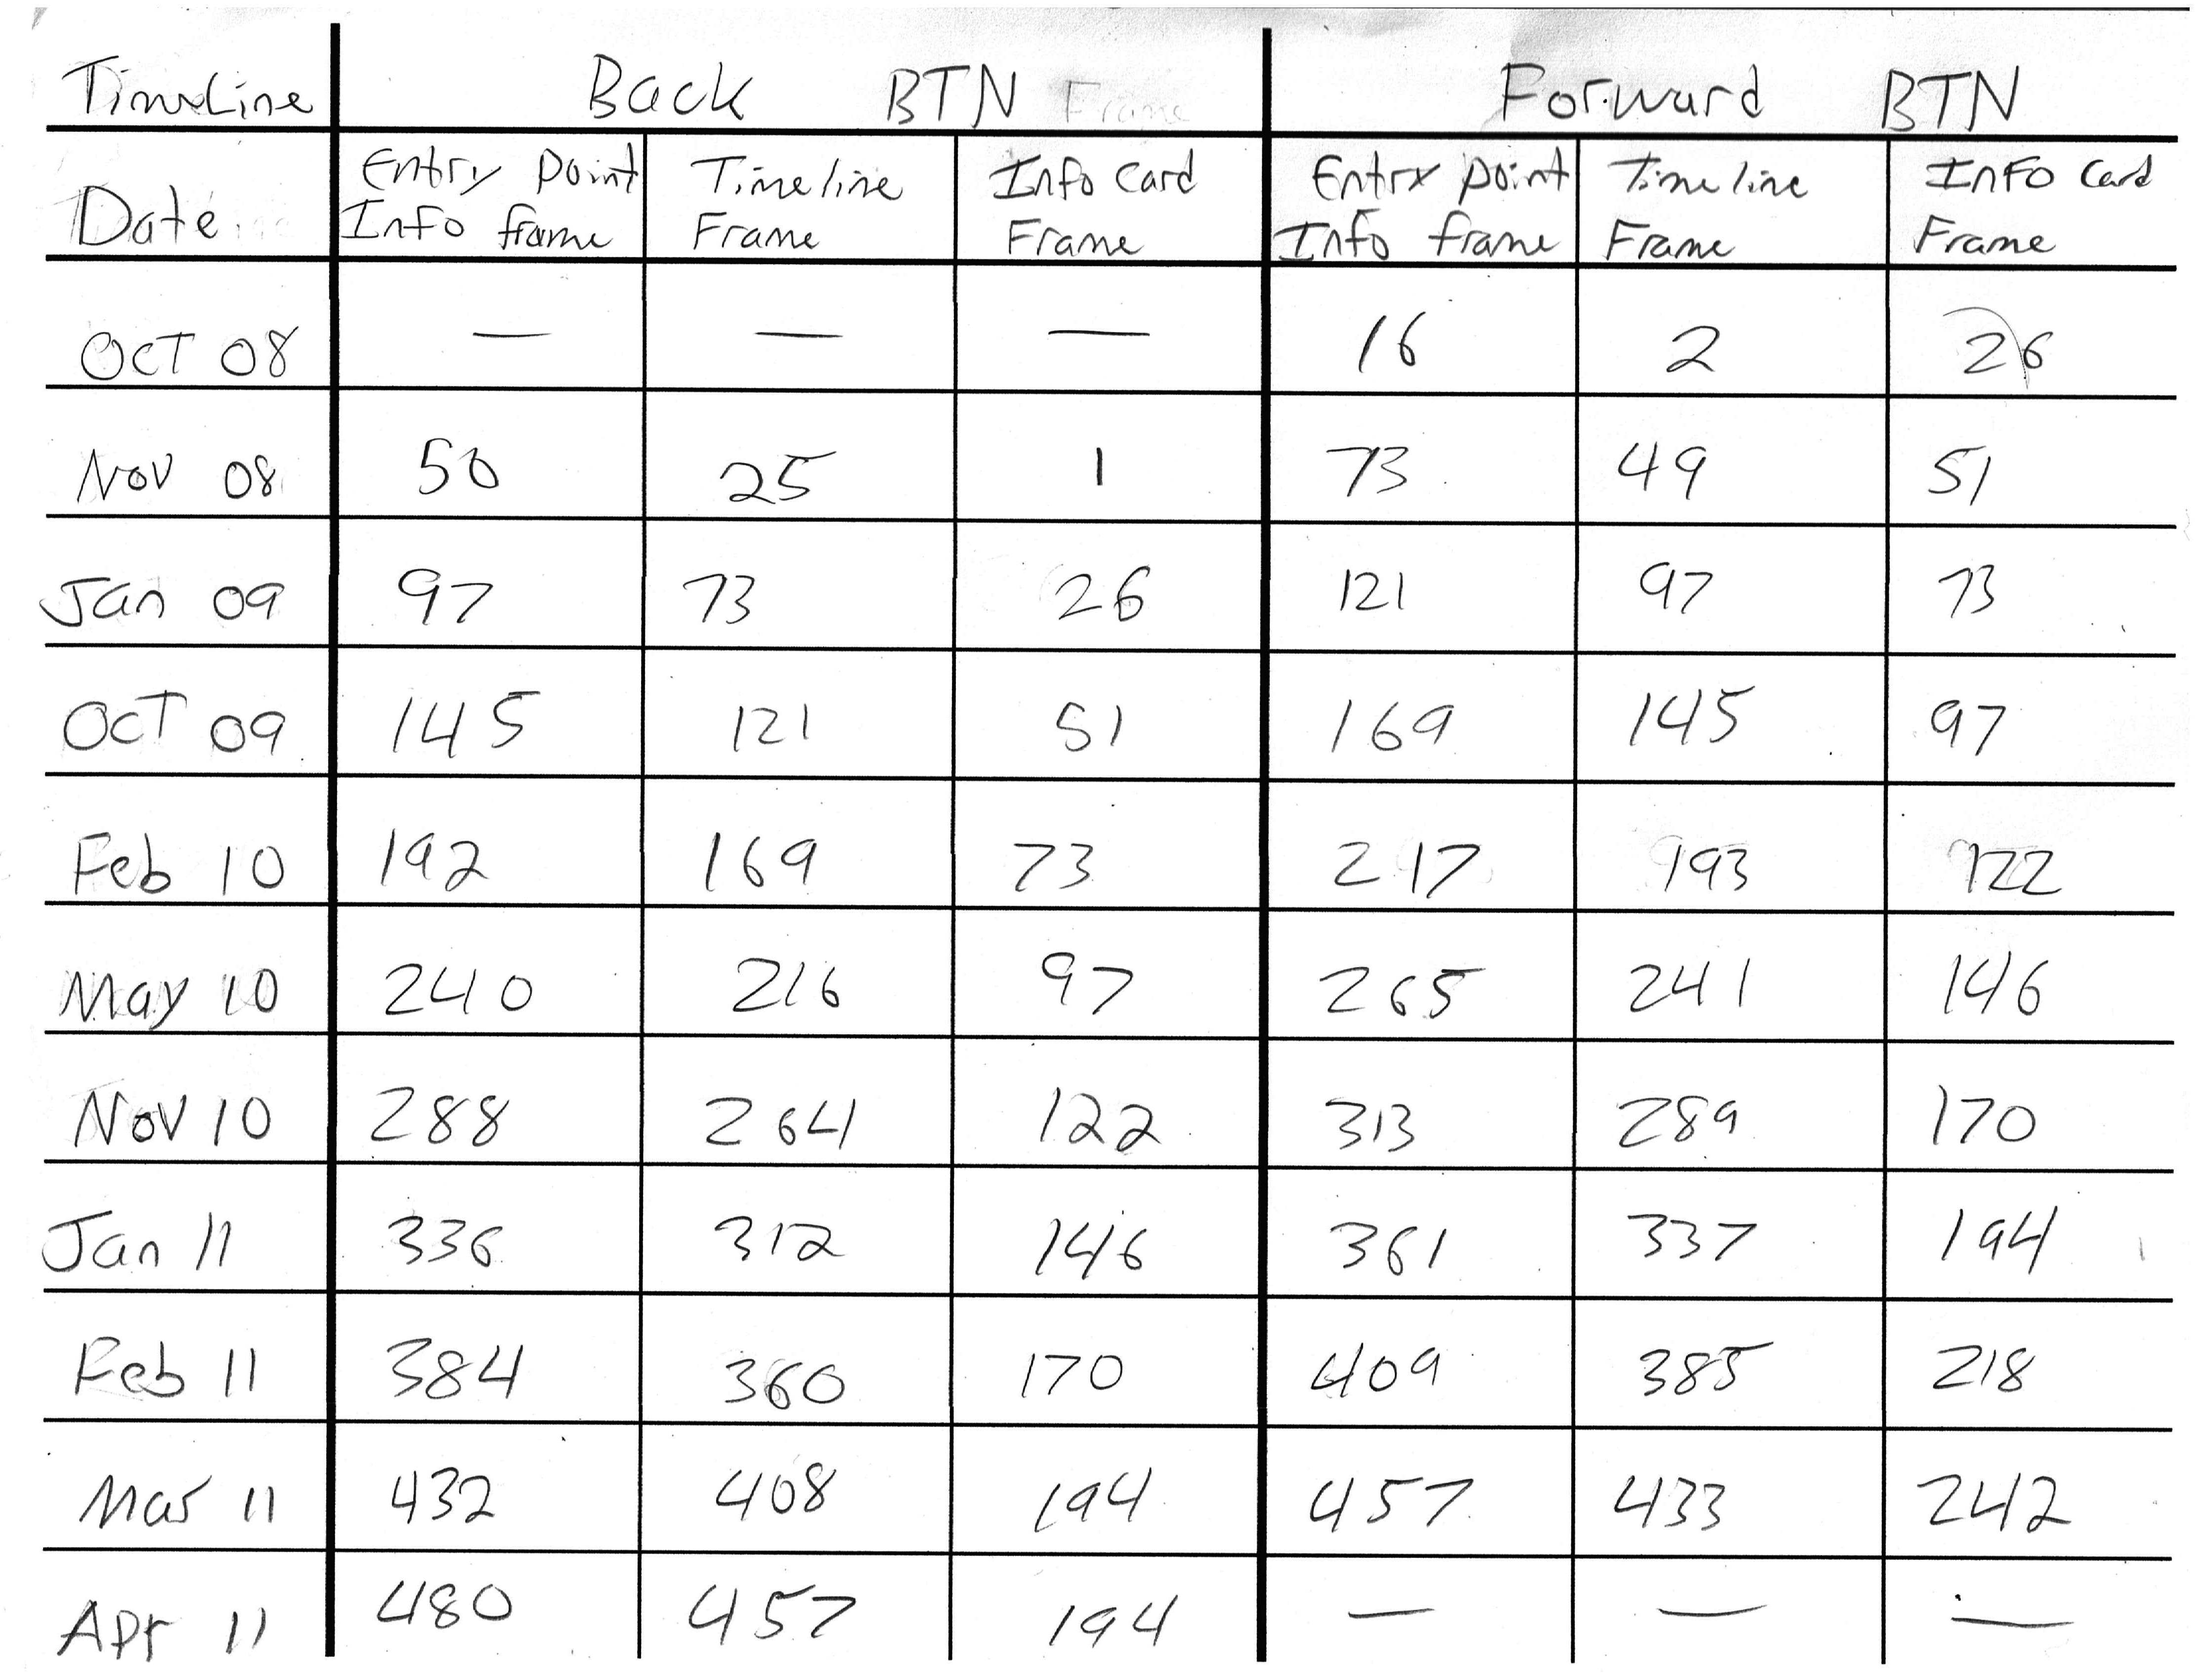 Timeline Back BTN Frame Forward BTN
Date Entry Point Timeline Info Card Entry Point Timeline Info Card
Info frame Frame Frame Info frame Frame Frame
Oct 08 — — — 16 2 26
Nov 08 50 25 1 73 49 51
Jan 09 97 73 26 121 97 73
Oct 09 145 121 51 169 145 97
Feb 10 192 169 73 217 193 122
May 10 240 216 97 265 241 146
Nov 10 288 264 122 313 289 170
Jan 11 336 312 146 361 337 194
Feb 11 384 360 170 409 385 218
Mar 11 432 408 194 457 433 242
Apr 11 480 457 194 — — —